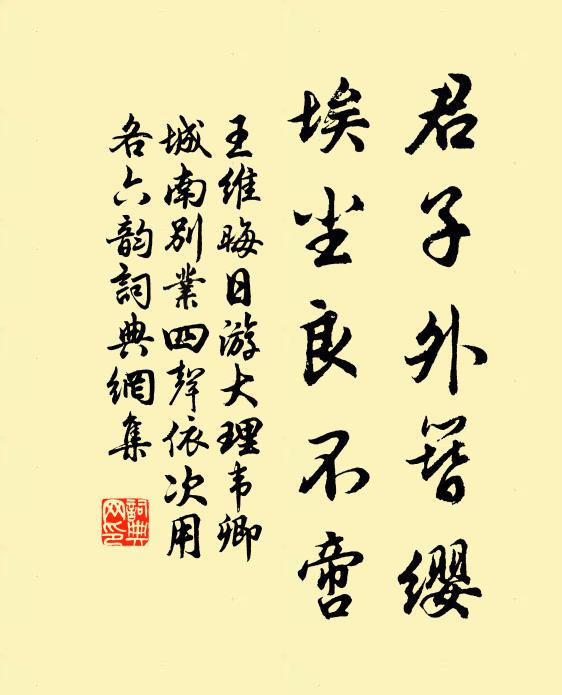 君子外簪缨
埃尘良不啻
王维晦日游大理韦卿
城南别业四声依次用
各六韵詞典網集
詞典网印